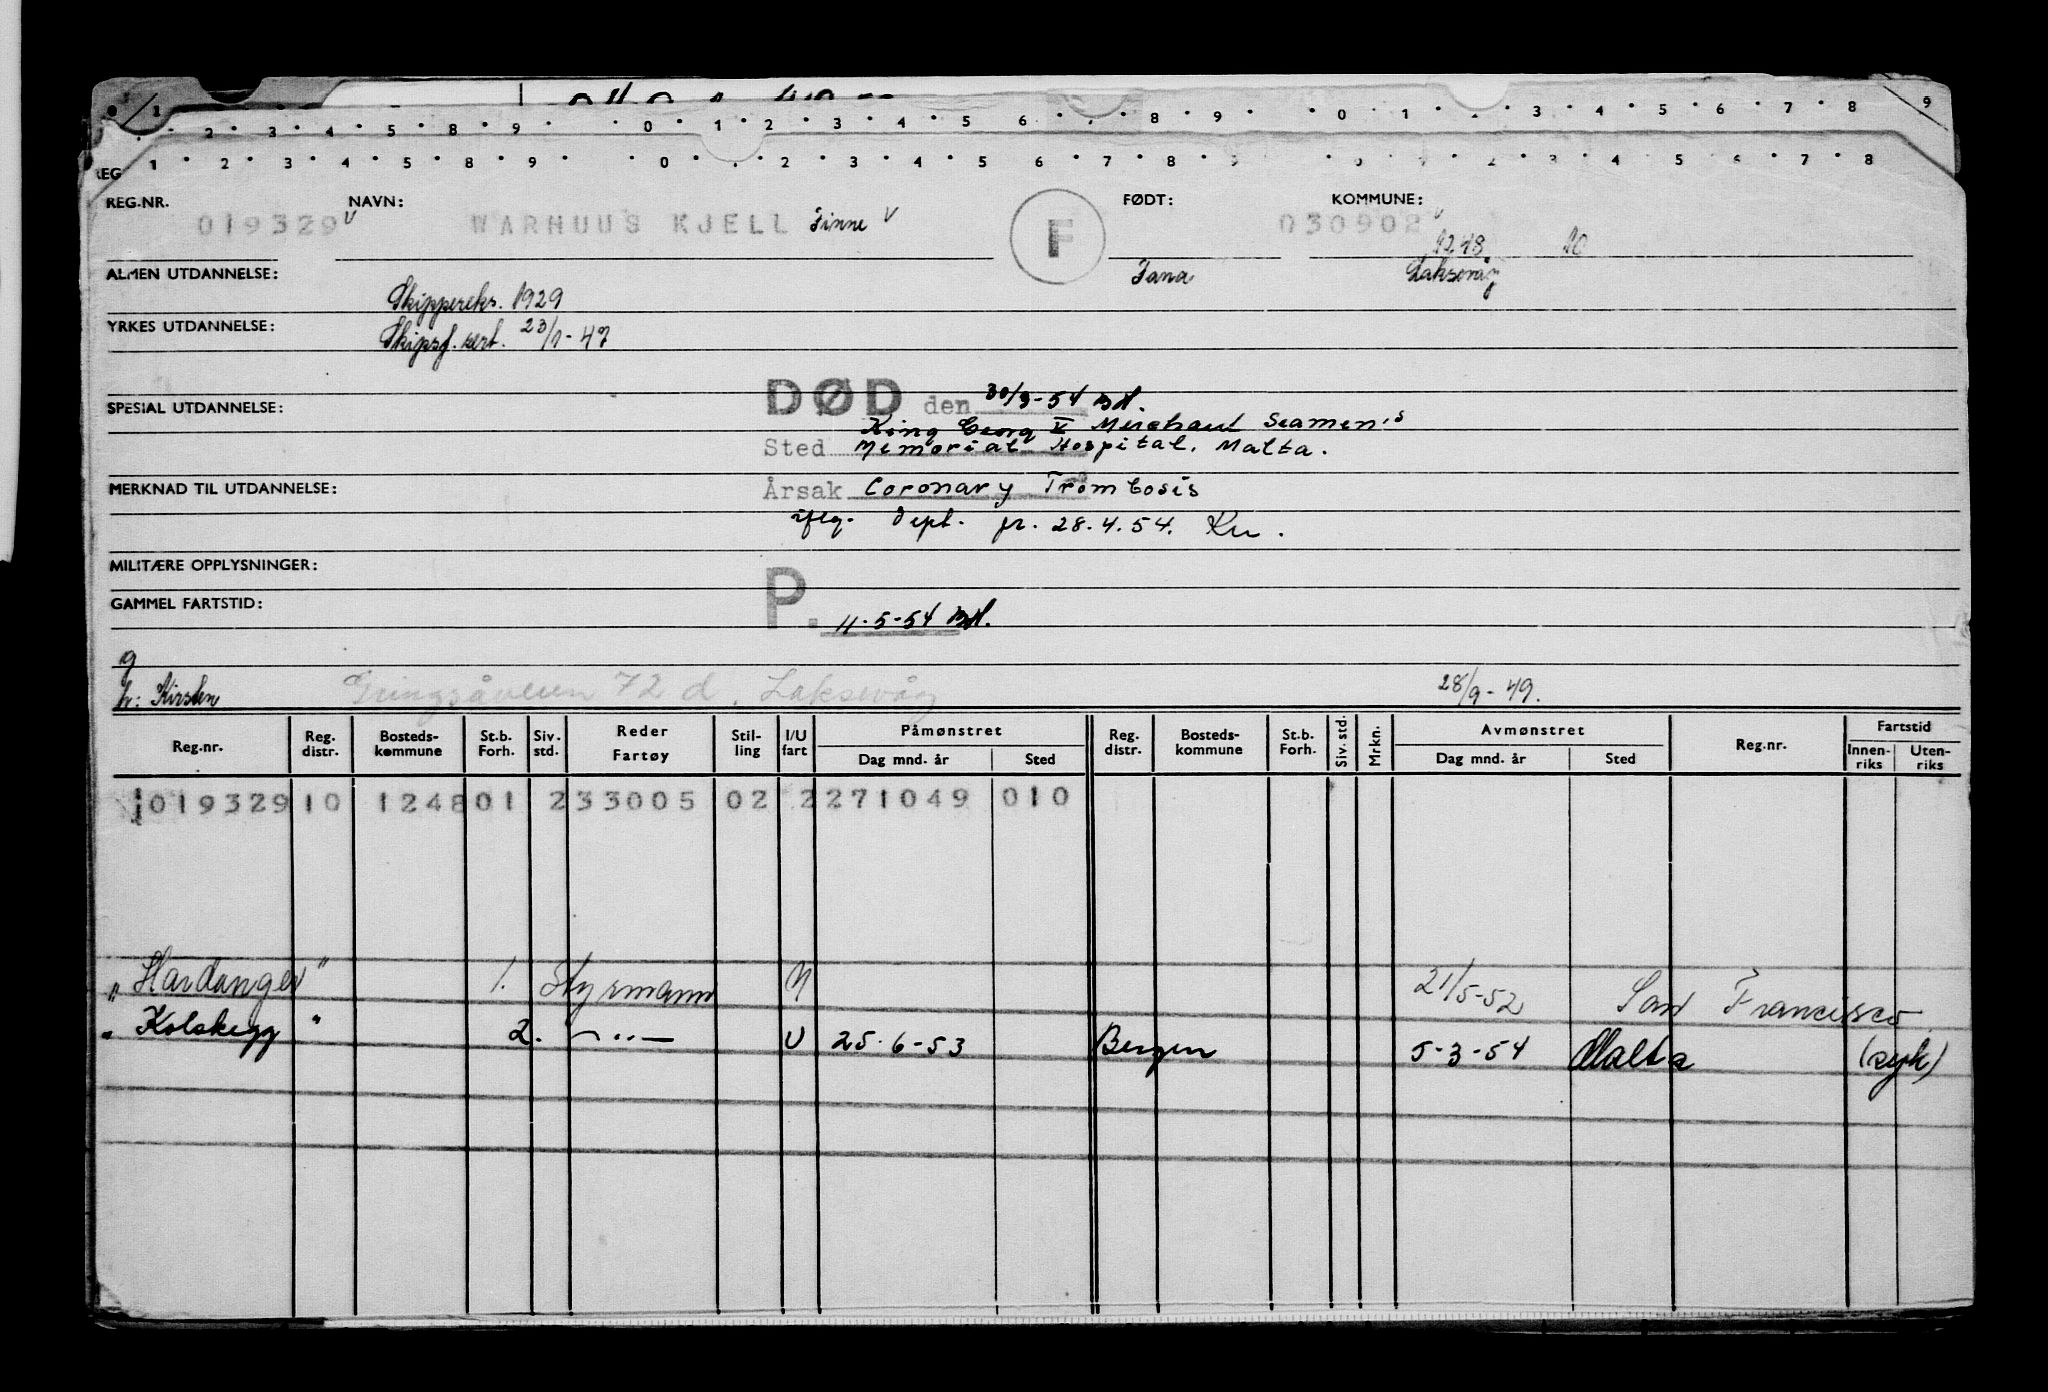 1 2 3 4 5 8 9 0 1 2 3 4 5 6 8 9 0 1 3 4 5 6 7 8 9
1 2 3 4 5 8 9 0 2 3 4 5 6 7 8 9 2 3 4 5 6 7 8
REG.NR. NAVN: FØDT: KOMMUNE:
019329 V WARHUUS KJELL Finne V F 030902 V
1248 10
ALMEN UTDANNELSE: Tana Laksevåg
Skippereks. 1929
YRKES UTDANNELSE: Skipsf. sert. 23/1-47
DØD den 30/3-54 BH.
SPESIAL UTDANNELSE: King Georg V Merchant Seamen's
Sted Memorial Hospital, Malta.
MERKNAD TIL UTDANNELSE: Årsak Coronary Trombosis
iflg. Dept. fr. 28.4.54. Kn.
MILITÆRE OPPLYSNINGER:
GAMMEL FARTSTID: P. 11-5-54 BH.
g
h: Kirsten 72 d, Laksevåg 28/9-49.
Reg.nr. Reg. distr. Bosteds-kommune St.b. Forh. Siv. std. Reder Fartøy Stil-ling I/U fart Påmønstret Dag mnd. år Sted Reg. distr. Bosteds-kommune St.b. Forh. Siv. std. Mrkn. Avmønstret Dag mnd. år Sted Reg.nr. Fartstid Innen-riks Uten-riks
019329 10 1248 01 2 33005 02 2 271049 010
"Hardanger" 1. Styrmann U 21/5-52 San Francisco
"Kolskegg" 2. —"— U 25-6-53 Bergen 5-3-54 Malta (syk)